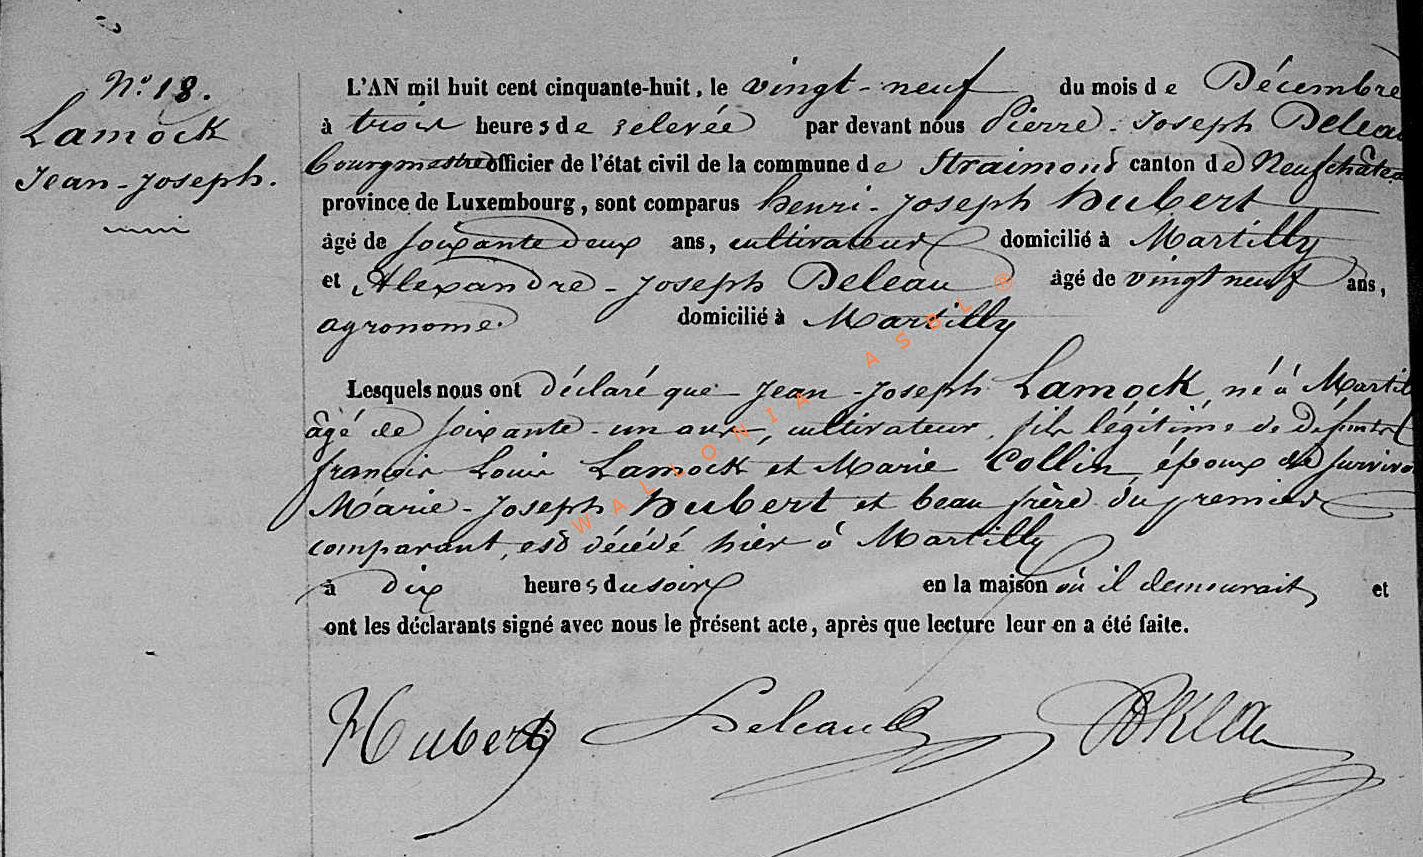 N.° 18.
Lamock
Jean-Joseph.
L'AN mil huit cent cinquante-huit, le vingt-neuf du mois de Décembre
à trois heures de relevée par devant nous Pierre-Joseph Deleau
bourgmestre officier de l'état civil de la commune de Straimont canton de Neufchâteau
province de Luxembourg, sont comparus henri-Joseph Hubert
âgé de soixante deux ans, cultivateur domicilié à Martilly
et Alexandre-Joseph Deleau âgé de vingt neuf ans,
agronome. domicilié à Martilly
Lesquels nous ont déclaré que Jean-Joseph Lamock, né à Martil
âgé de soixante-un ans, cultivateur, fils légitime de défunts
françois Louis Lamock et Marie Collin, époux de survivo
Marie-Joseph Hubert et beau frère du premier
comparant, est décédé hier à Martilly
à dix heures du soir en la maison où il demeurait et
ont les déclarants signé avec nous le présent acte, après que lecture leur en a été faite.
Hubert Deleau
WALLONIA ASBL ®